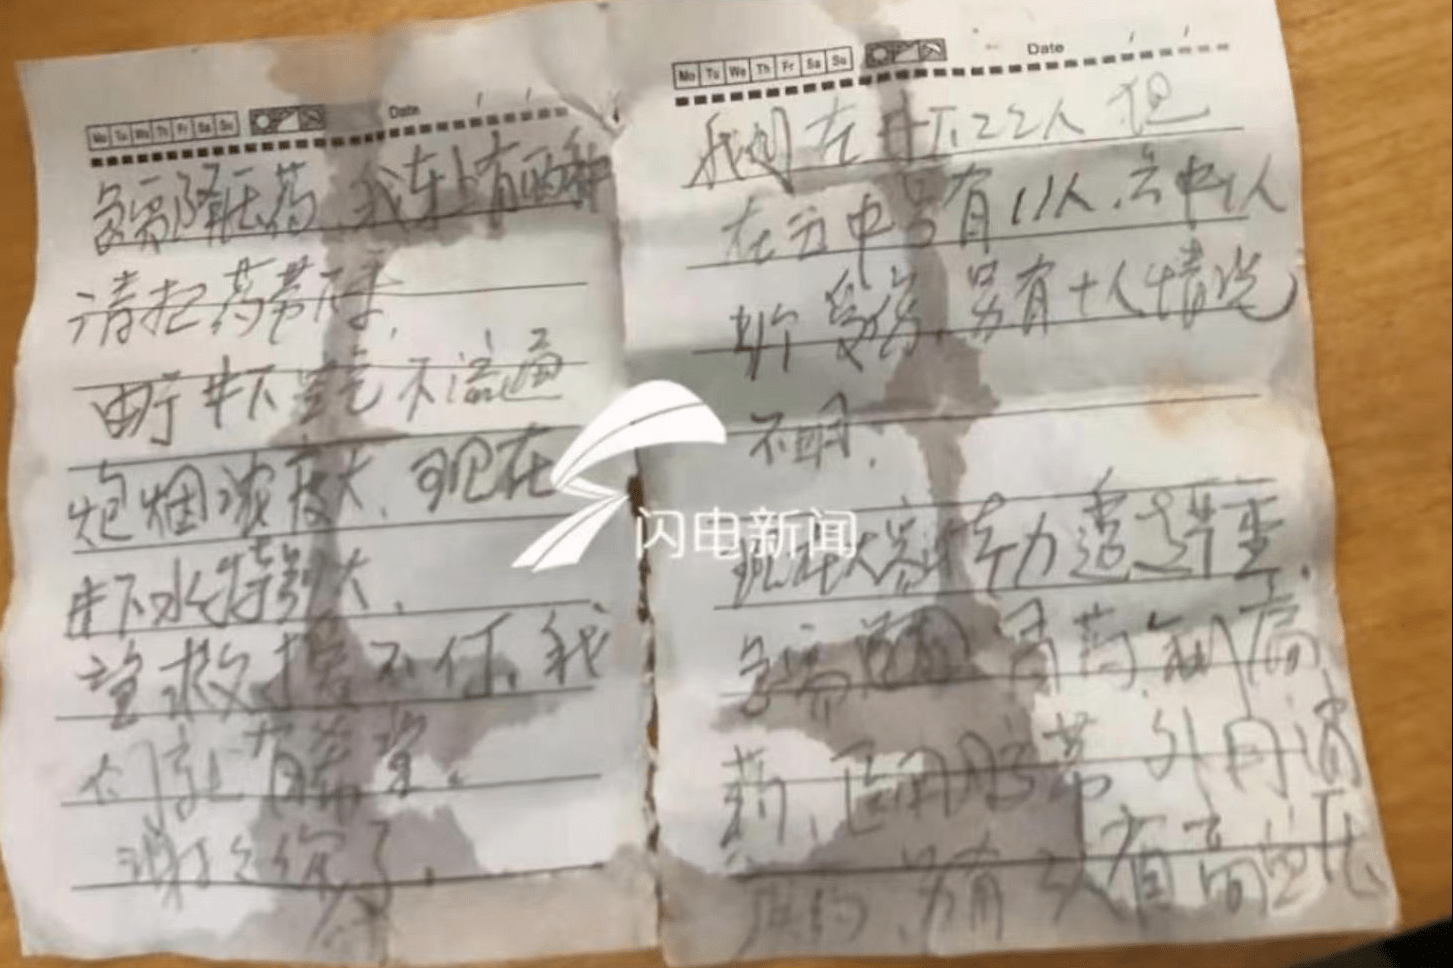 Mo Tu We Th Fr Sa Su Date / /
急需降压药、我车上有两种
请把药带下来,
由于井下空气不流通
炮烟浓度大, 现在
井下水特别大,
望救援不停, 我
们就有希望.
谢谢你了.
Mo Tu We Th Fr Sa Su Date / /
我们在井下22人 但
在五中 有11人, 六中1人
受伤, 另有十人情况
不明.
现在大部分体力透支严重.
急需 胃药、
药、医用胶带 外用消
炎药, 另有 3人有高血压
闪电新闻